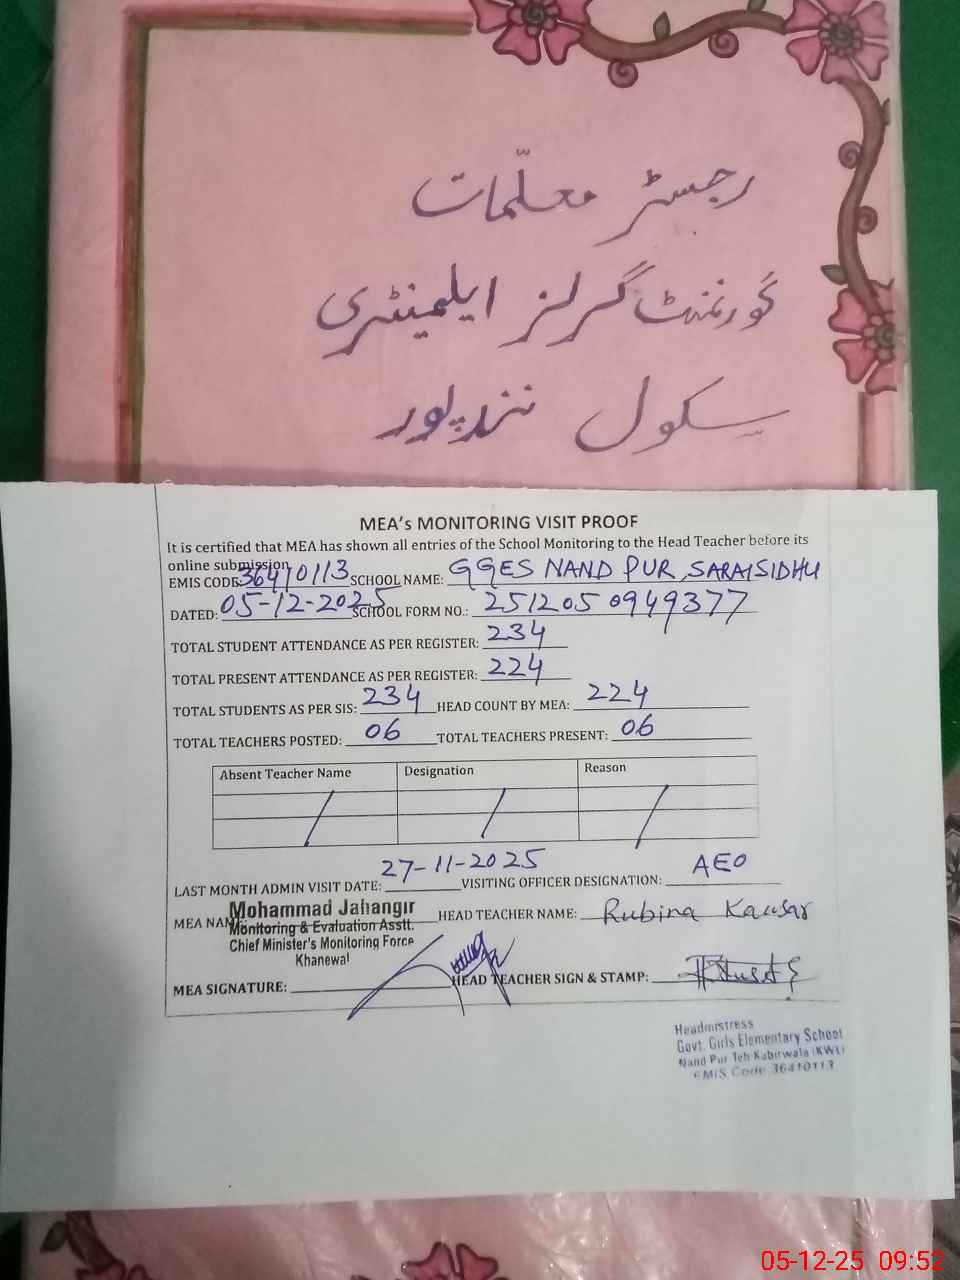 رجسٹر معلّمات
گورنمنٹ گرلز ایلیمنٹری
سکول نندپور
MEA's MONITORING VISIT PROOF
It is certified that MEA has shown all entries of the School Monitoring to the Head Teacher before its
online submission
EMIS CODE: 36410113 SCHOOL NAME: GGES NAND PUR, SARAISIDHU
DATED: 05-12-2025 SCHOOL FORM NO.: 2512050949377
TOTAL STUDENT ATTENDANCE AS PER REGISTER: 234
TOTAL PRESENT ATTENDANCE AS PER REGISTER: 224
TOTAL STUDENTS AS PER SIS: 234 HEAD COUNT BY MEA: 224
TOTAL TEACHERS POSTED: 06 TOTAL TEACHERS PRESENT: 06
Absent Teacher Name Designation Reason
LAST MONTH ADMIN VISIT DATE: 27-11-2025 VISITING OFFICER DESIGNATION: AEO
MEA NAME: Mohammad Jahangir HEAD TEACHER NAME: Rubina Kausar
Monitoring & Evaluation Asstt.
Chief Minister's Monitoring Force
Khanewal
MEA SIGNATURE: HEAD TEACHER SIGN & STAMP:
Headmistress
Govt. Girls Elementary School
Nand Pur Teh Kabirwala (KWL)
EMIS Code 36410113
05-12-25 09:52